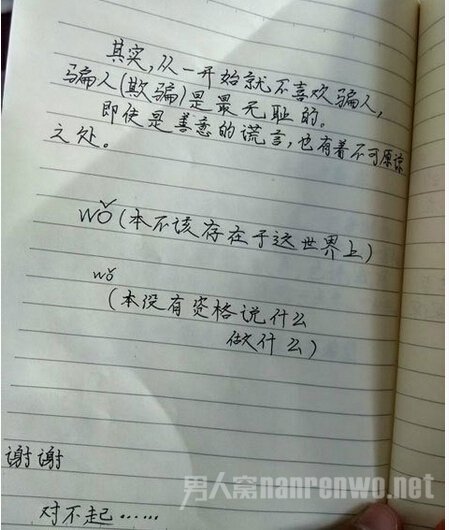 其实,从一开始就不喜欢骗人,
骗人(欺骗)是最无耻的。
即使是善意的谎言,也有着不可原谅
之处。
wǒ(本不该存在于这世界上)
wǒ
(本没有资格说什么
做什么)
谢谢
对不起……
男人窝nanrenwo.net